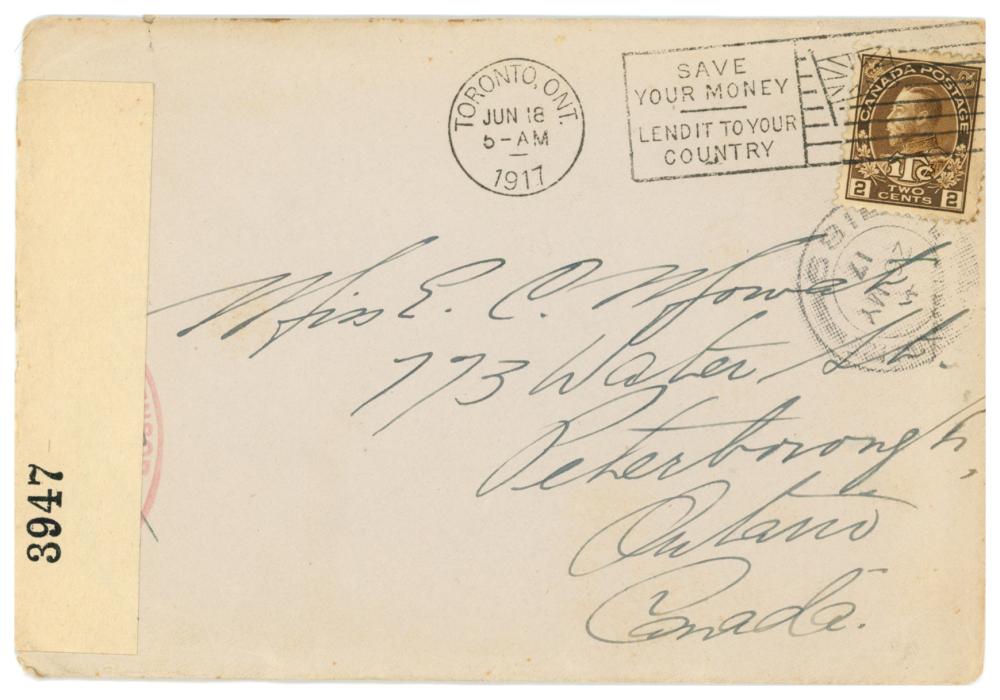 TORONTO, ONT.
JUN 18
5-AM
1917
SAVE
YOUR MONEY
LEND IT TO YOUR
COUNTRY
CANADA POSTAGE
1Tc
2 TWO CENTS 2
17
MY
Miss E. C. Mowat
773 Water St.
Peterborough,
Ontario
Canada.
3947